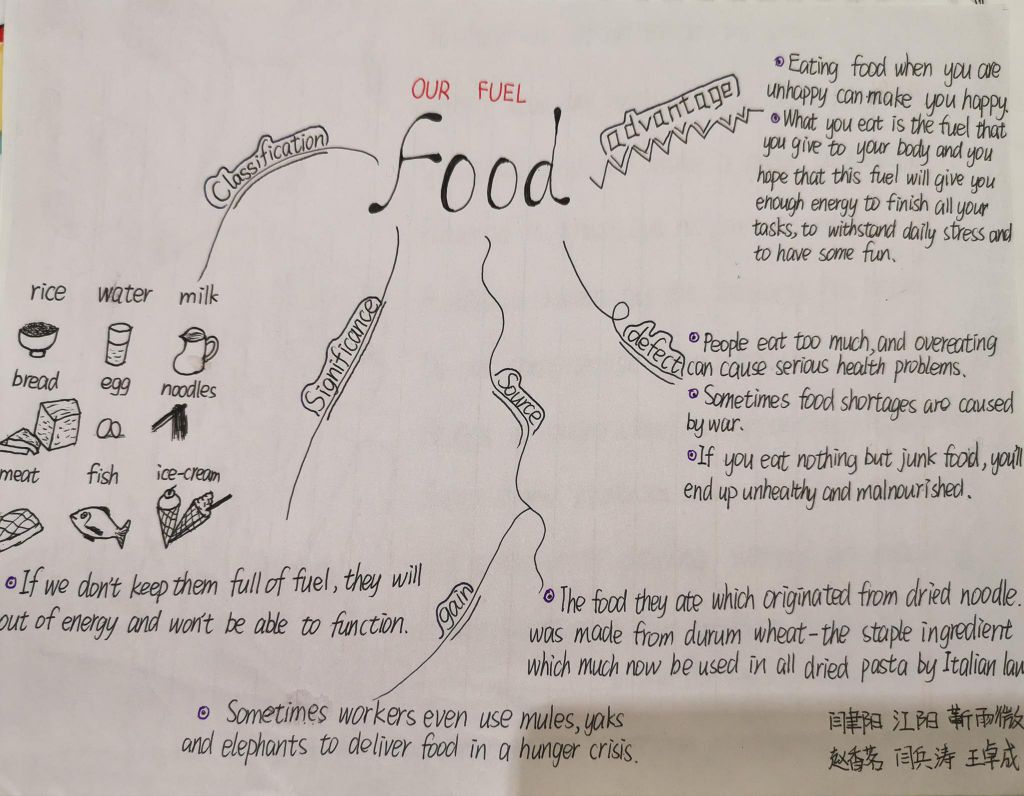 OUR FUEL
food
Classification
rice water milk
bread egg noodles
meat fish ice-cream
advantage
Eating food when you are
unhappy can make you happy.
What you eat is the fuel that
you give to your body and you
hope that this fuel will give you
enough energy to finish all your
tasks, to withstand daily stress and
to have some fun.
Significance
If we don't keep them full of fuel, they will
out of energy and won't be able to function.
Source
The food they ate which originated from dried noodle.
was made from durum wheat-the staple ingredient
which much now be used in all dried pasta by Italian law
defect
People eat too much, and overeating
can cause serious health problems.
Sometimes food shortages are caused
by war.
If you eat nothing but junk food, you'll
end up unhealthy and malnourished.
gain
Sometimes workers even use mules, yaks
and elephants to deliver food in a hunger crisis.
闫聿阳 江阳 靳雨微
赵香茗 闫兵涛 王卓成